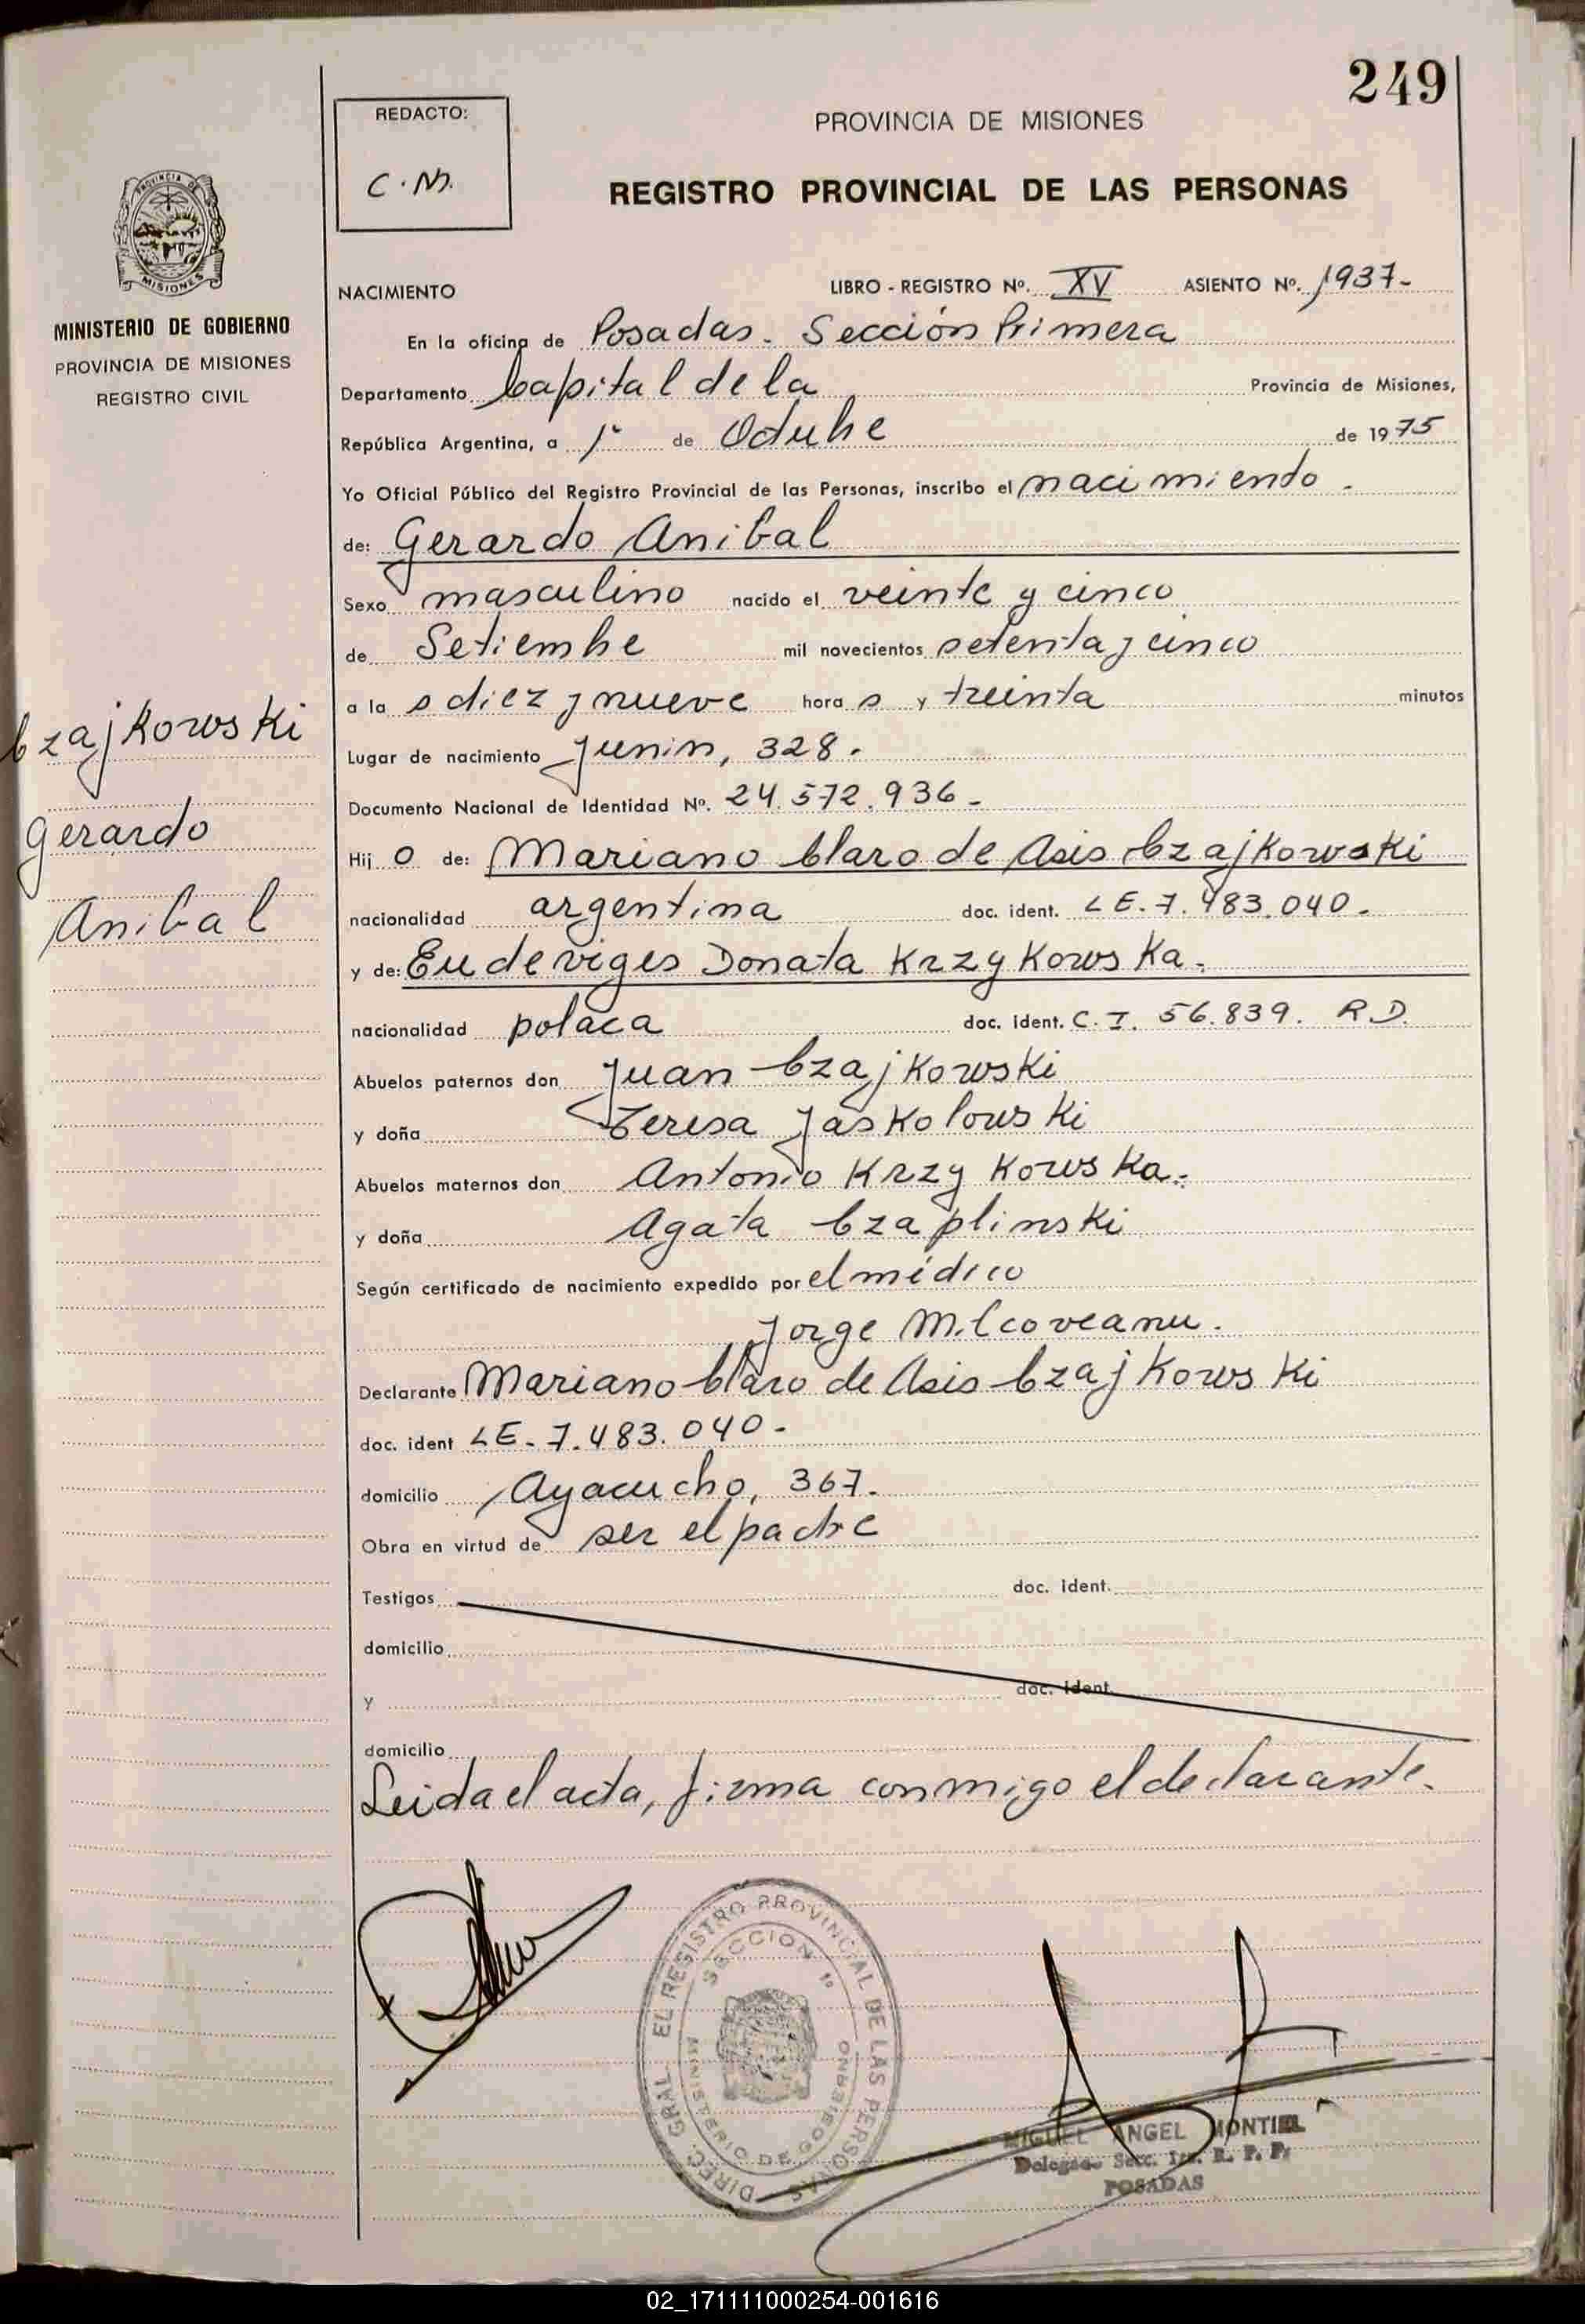 249
REDACTO:
C.M.
PROVINCIA DE MISIONES
REGISTRO PROVINCIAL DE LAS PERSONAS
PROVINCIA DE
MISIONES
MINISTERIO DE GOBIERNO
PROVINCIA DE MISIONES
REGISTRO CIVIL
Czajkowski
Gerardo
Anibal
NACIMIENTO LIBRO - REGISTRO Nº. XV ASIENTO Nº. 1937-
En la oficina de Posadas. Sección Primera
Departamento Capital de la Provincia de Misiones,
República Argentina, a 1º de Octubre de 1975
Yo Oficial Público del Registro Provincial de las Personas, inscribo el nacimiento.
de: Gerardo Anibal
Sexo masculino nacido el veinte y cinco
de Setiembre mil novecientos setenta y cinco
a la s diez y nueve hora s y treinta minutos
Lugar de nacimiento Junin, 328.
Documento Nacional de Identidad Nº. 24.572.936-
Hij o de: Mariano Claro de Asis Czajkowski
nacionalidad argentina doc. ident. LE. 7.483.040.
y de: Eudeviges Donata Krzykowska.
nacionalidad polaca doc. ident. C.I. 56.839. R.D.
Abuelos paternos don Juan Czajkowski
y doña Teresa Jaskolowski
Abuelos maternos don Antonio Krzykowska.
y doña Agata Czaplinski
Según certificado de nacimiento expedido por el médico
Jorge Milcoveanu.
Declarante Mariano Claro de Asis Czajkowski
doc. ident LE- 7.483.040-
domicilio Ayacucho, 367.
Obra en virtud de ser el padre
Testigos doc. ident.
domicilio
y doc. ident.
domicilio
Leida el acta, firma conmigo el declarante.
DIREC. GRAL. EL REGISTRO PROVINCIAL DE LAS PERSONAS
SECCION 1ª
MINISTERIO DE GOBIERNO
MIGUEL ANGEL MONTIEL
Delegado Secc. 1ra. R. P. P.
POSADAS
02_171111000254-001616